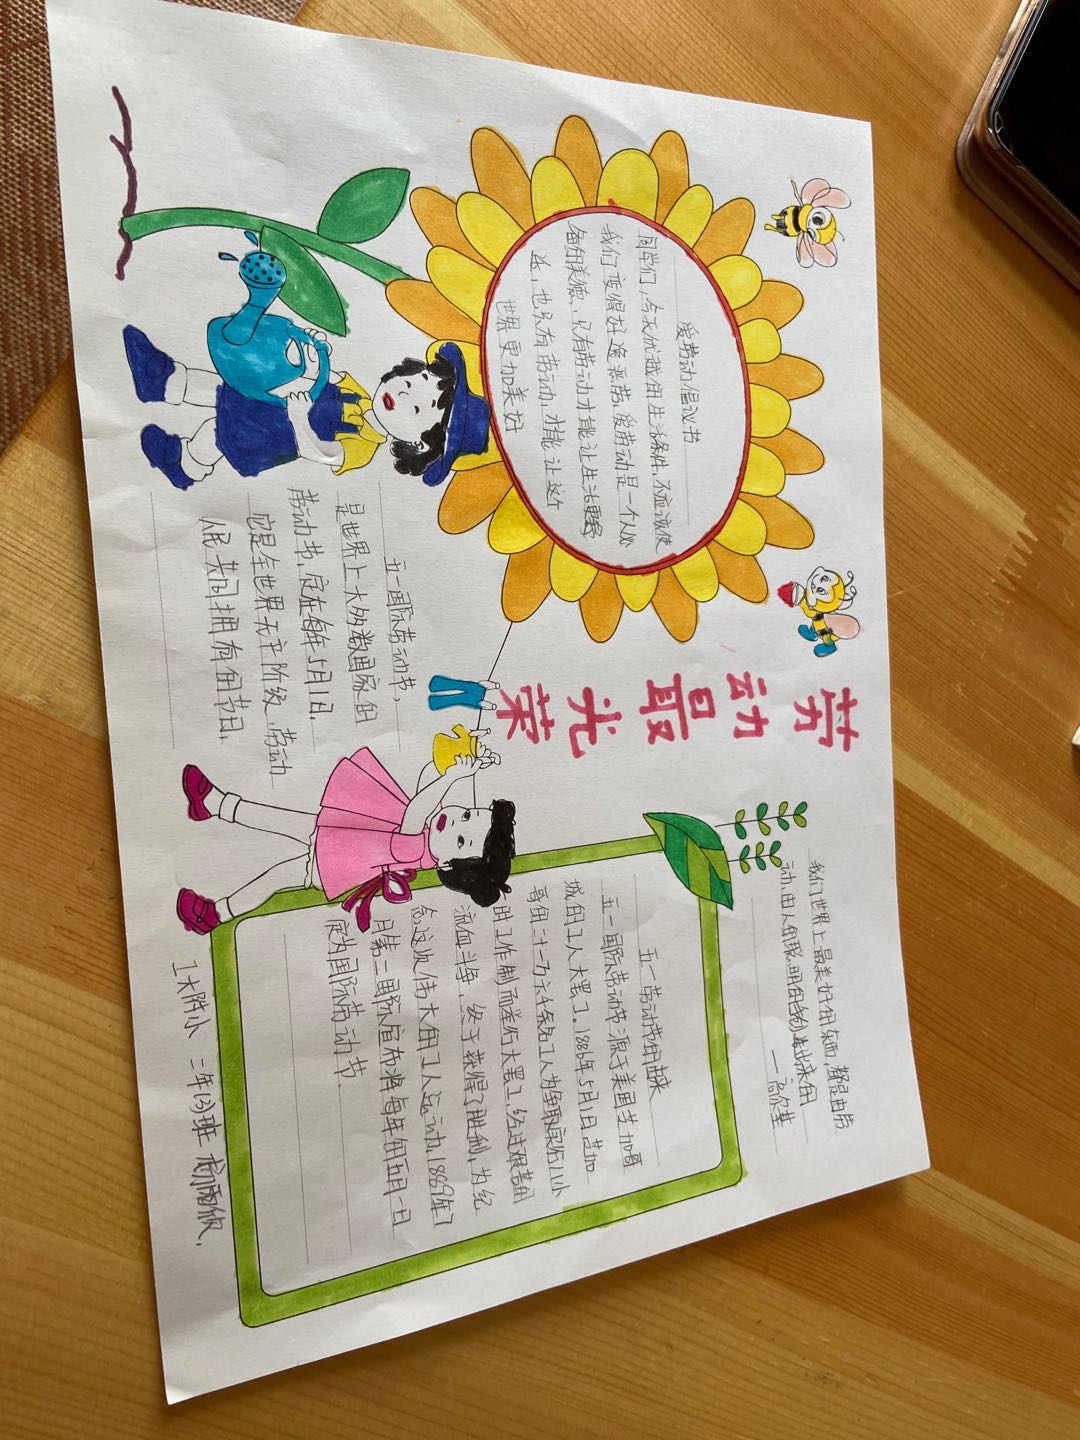 劳动最光荣
爱劳动倡议书
同学们,今天优越的生活条件,不应该使
我们变得好逸恶劳,爱劳动是一个人必
备的美德,只有劳动才能让生活更
也只有劳动,才能让这个
世界更加美好
五一国际劳动节,
是世界上大多数国家的
劳动节,定在每年5月1日.
它是全世界无产阶级、劳动
人民共同拥有的节日.
我们世界上最美好的东西,都是由劳
动、由人的聪明的手创造出来的
——高尔基
五一劳动节的由来
五一国际劳动节源于美国芝加哥
城的工人大罢工。1886年5月1日芝加
哥的二十一万六千余名工人为争取实行八小
时工作制而举行大罢工,经过艰苦的
流血斗争,终于获得了胜利,为纪
念这次伟大的工人运动,1889年7
月第二国际宣布将每年的五月一日
定为国际劳动节.
二年(3)班